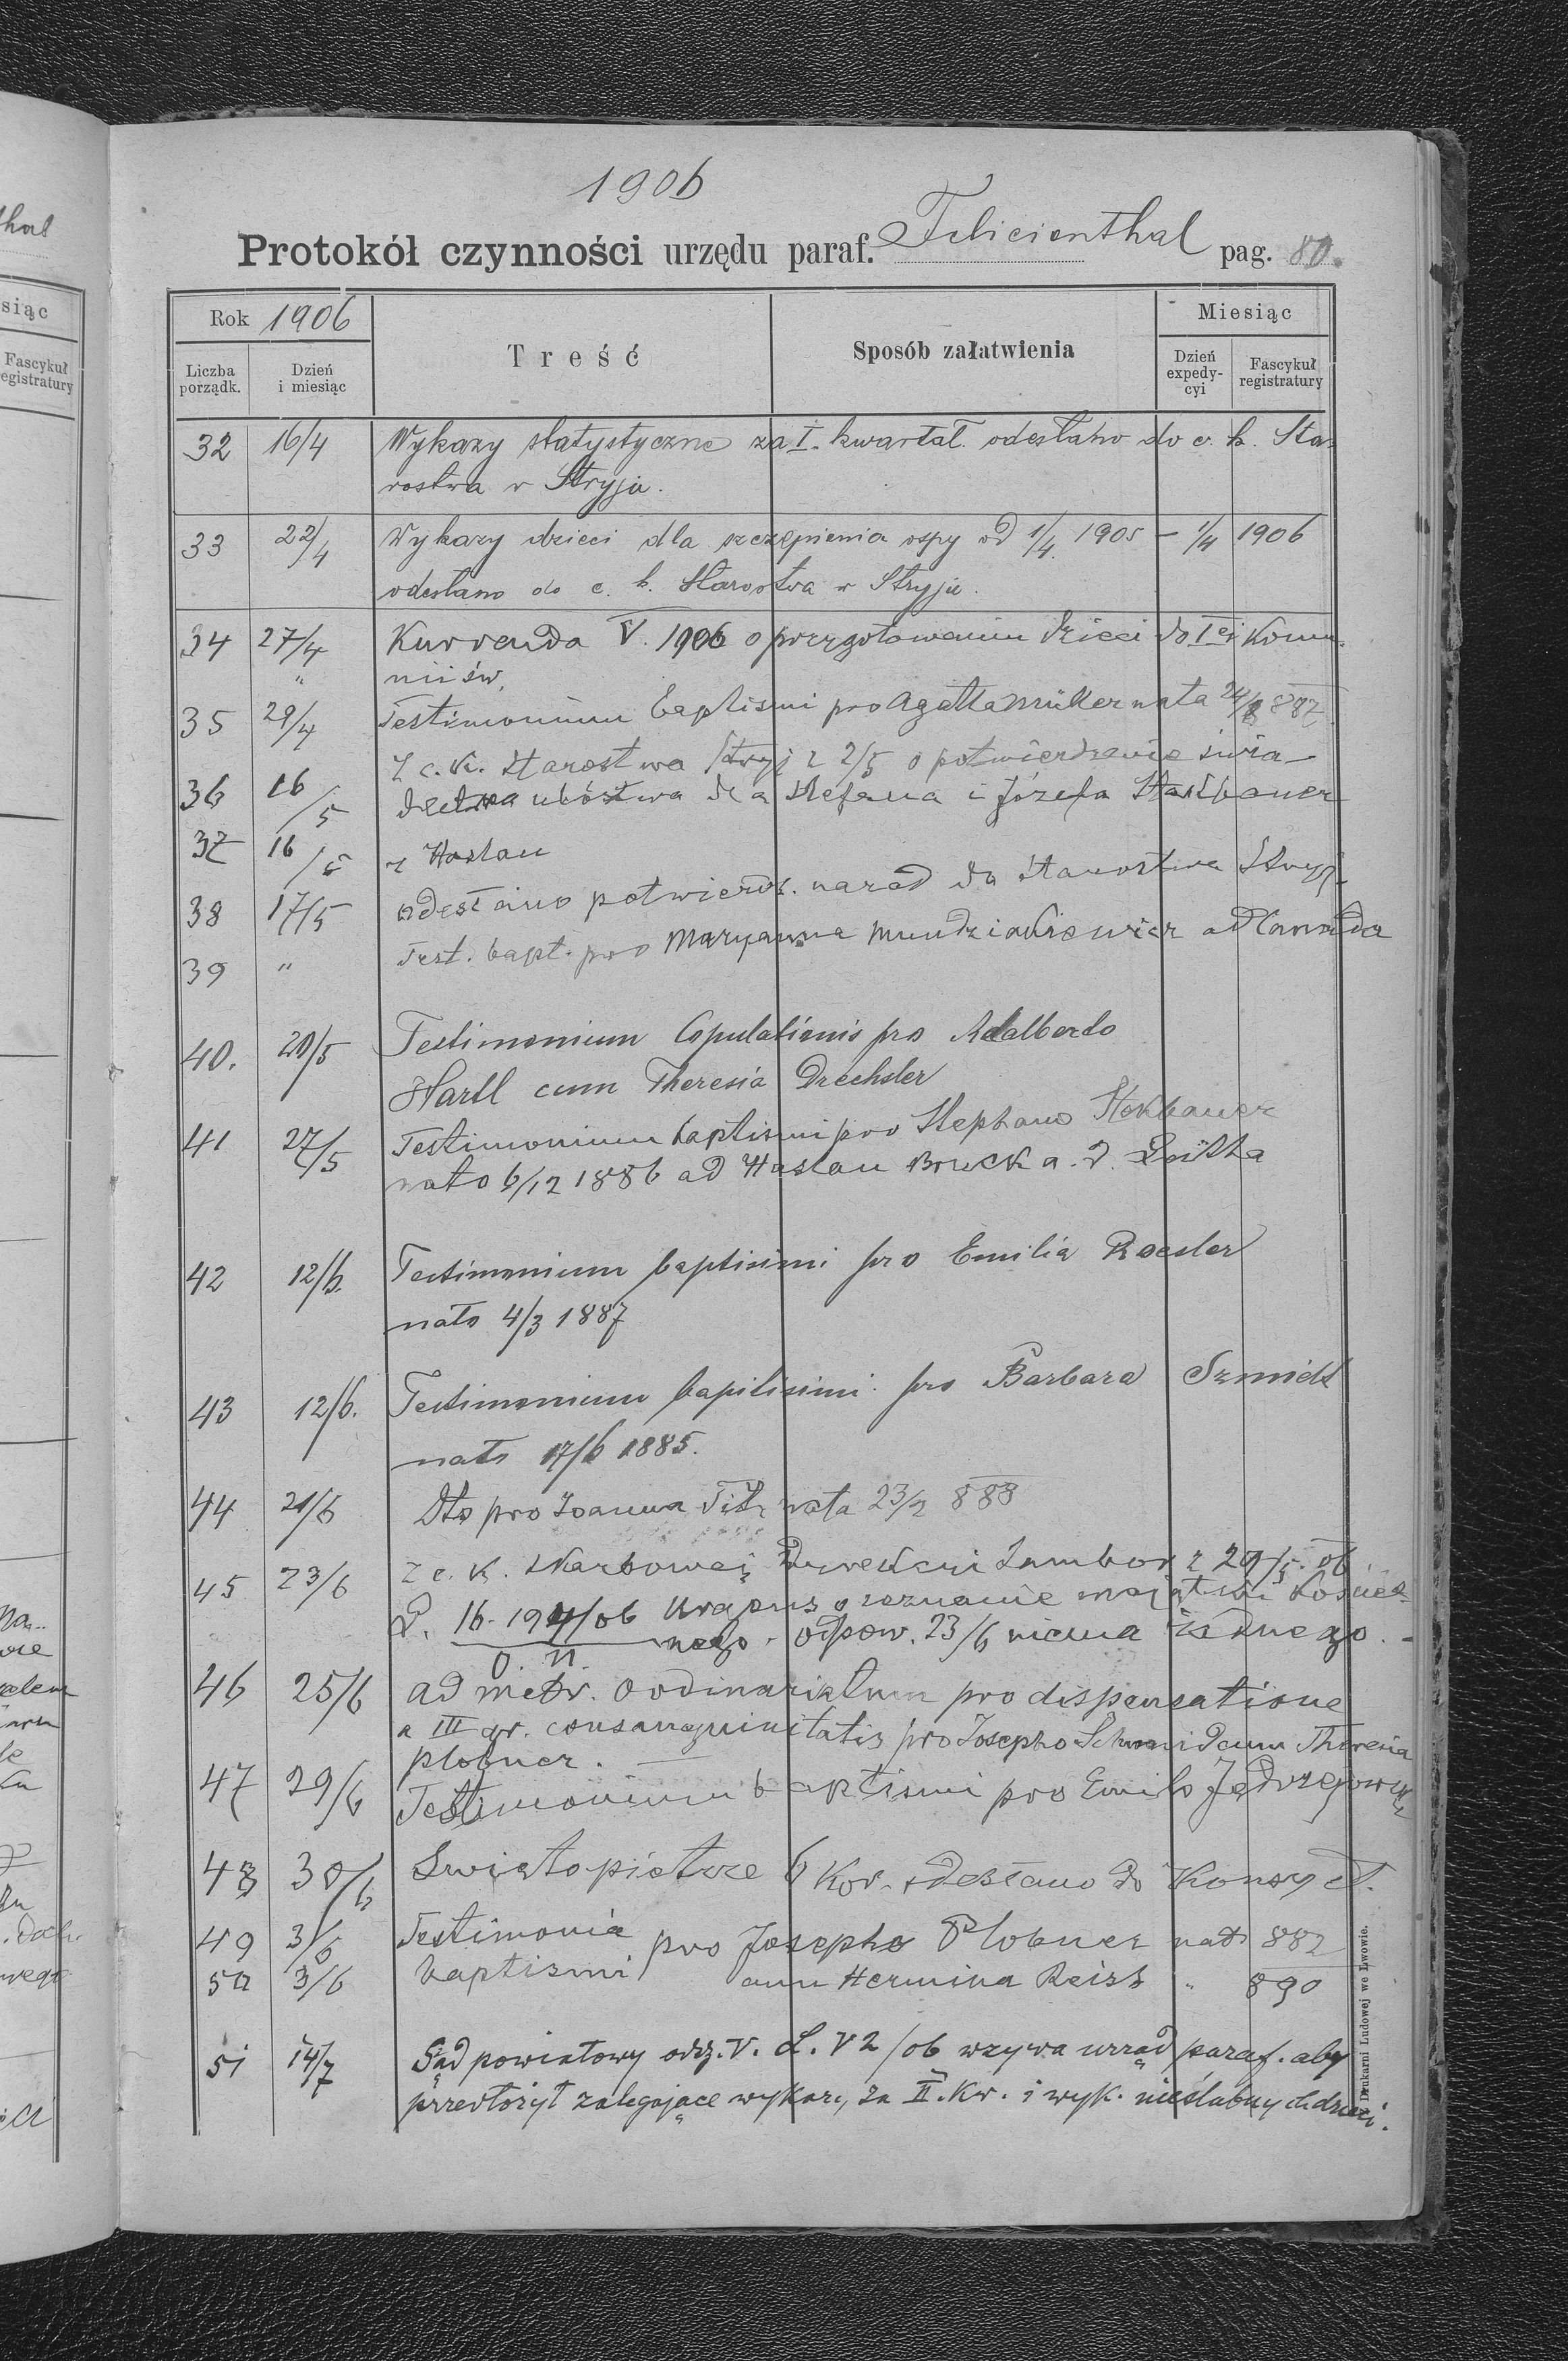 1906
Protokół czynności urzędu paraf. Felicienthal pag. 80.
Rok 1906
Liczba porządk.
Dzień i miesiąc
Treść
Sposób załatwienia
Miesiąc
Dzień expedycyi
Fascykuł registratury
32 16/4 Wykazy statystyczne za I. kwartał odesłano do c. k. Sta-
rostwa w Stryju.
33 22/4 Wykazy dzieci dla szczepienia ospy od 1/4 1905 – 1/4 1906
odesłano do c. k. Starostwa w Stryju.
34 27/4 Kurrenda V. 1906 o przygotowaniu dzieci do I ej Komu-
" nii św.
35 29/4 Testimonium baptismi pro Agatha Müller nata 24/8 887
Z c. k. Starostwa Stryj z 2/5 o potwierdzenie świa-
36 16/5 dectwa ubóstwa dla Stefana i Józefa
37 16/5 z Haslau
38 17/5 odesłano potwierdz. do Starostwa Stryj.
39 " Test. bapt. pro Maryanna ad Canada
40. 20/5 Testimonium Copulationis pro Adalberto
Hartl cum Theresia Drechsler
41 27/5 Testimonium baptismi pro Stephano
nato 6/12 1886 ad Haslau Bruck a. d. Leitha
42 12/6. Testimonium baptismi pro Emilia Roesler
nato 4/3 1887
43 12/6. Testimonium baptisimi pro Barbara Szmidt
nato 17/6 1885.
44 21/6 Dto pro Joanna nata 23/2 888
45 23/6 Z c. k. Skarbowej Dyrekcyi Sambor z 29/5. 06
L. 16-194/06 o zeznanie majątku kościel-
nego. odpow. 23/6 niema żadnego.
46 25/6 ad metr. Ordinariatum pro dispensatione
a III gr. consanguinitatis pro Josepho Schmid cum Theresia
Plobner.
47 29/6 Testimonium baptismi pro Emilo
48 30/6 Swietopietrze 6 Kor. odesłano do Konsyst.
49 3/6 Testimonia pro Josepho Plobner nato 882
50 3/6 baptismi cum Hermina Reiss " 890
51 14/7 Sąd powiatowy oddz. V. L. V 2/06 wzywa urząd paraf. aby
przedłożył zalegające wykazy za II. kw. i wyk. nieślubnych dzieci.
Z Drukarni Ludowej we Lwowie.